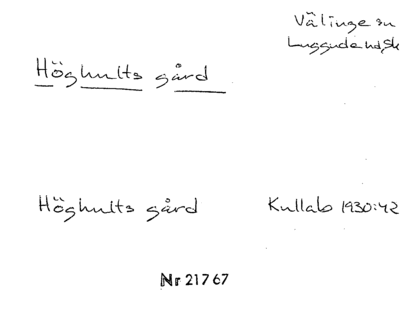 Välinge sn
Luggude hd, Sk
Höghults gård
Höghults gård Kullabo 1930:42
Nr 21767